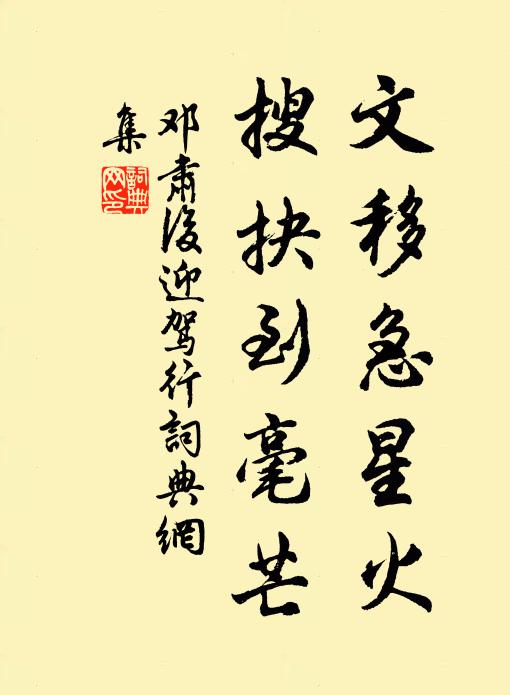 文移急星火
搜抉到毫芒
邓肃後迎驾行詞典網
集
詞典
网印